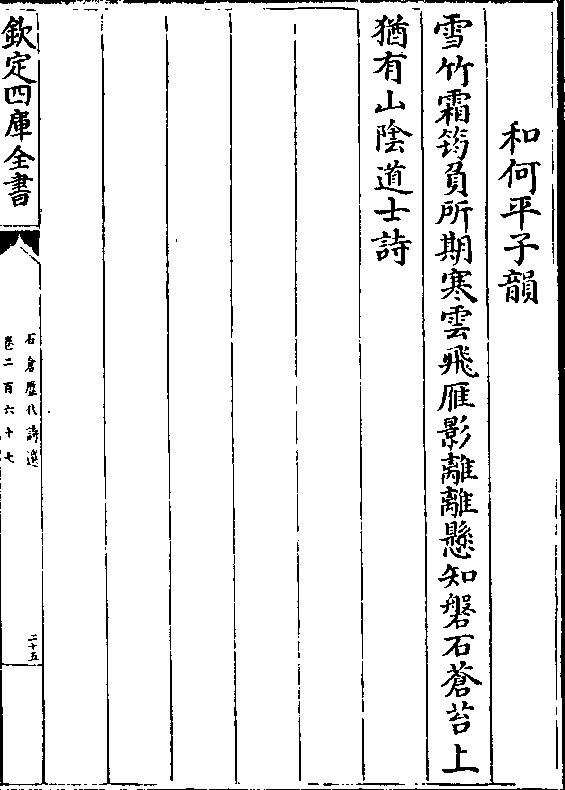 和何平子韻
雪竹霜筠負所期寒雲飛雁影離離懸知磐石蒼苔上
猶有山陰道士詩
欽定四庫全書
石倉歷代詩選
卷二百六十七
二十五